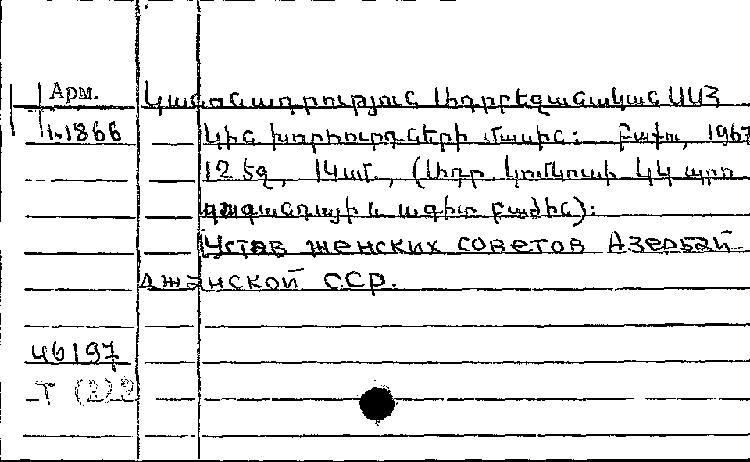 Арм. Կանոնադրություն Ադրբեջանական ՍՍՀ
1866 կին խորհուրդների մասին: Բաքու, 1967
12 էջ, 14սմ., (Ադր. կոմկուսի ԿԿ պրո
պագանդայի և ագիտ բաժին):
Устав женских советов Азербай
джанской ССР.
46197
Т (2)2